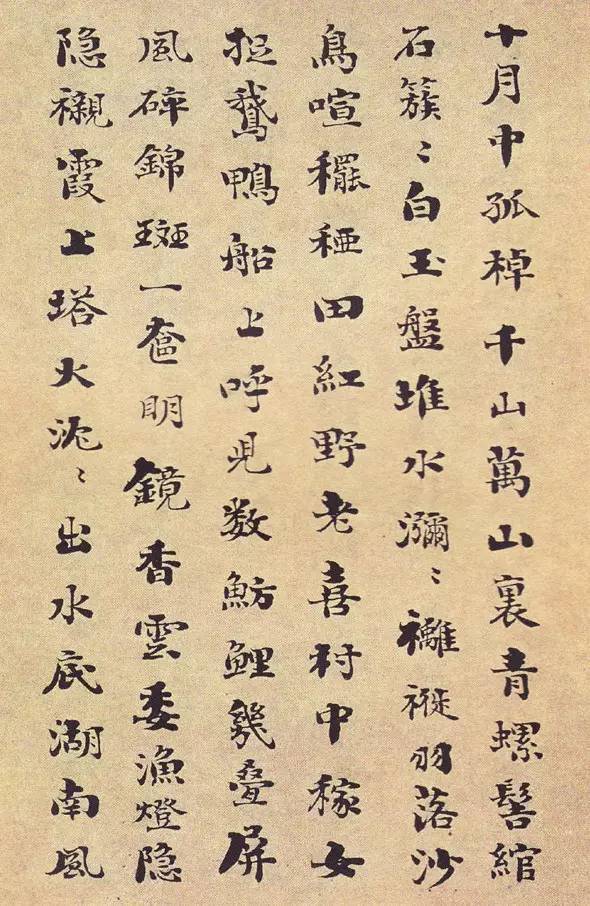 十月中孤棹千山萬山裏青螺髻綰
石簇〻白玉盤堆水瀰〻褷羽落沙
鳥喧䆉稏田紅野老喜村中稼女
捉鵝鴨船上呼児数魴鯉幾疊屏
風碎錦斑一奩明鏡香雲委漁燈隐
隐襯霞上塔火沉〻出水底湖南風